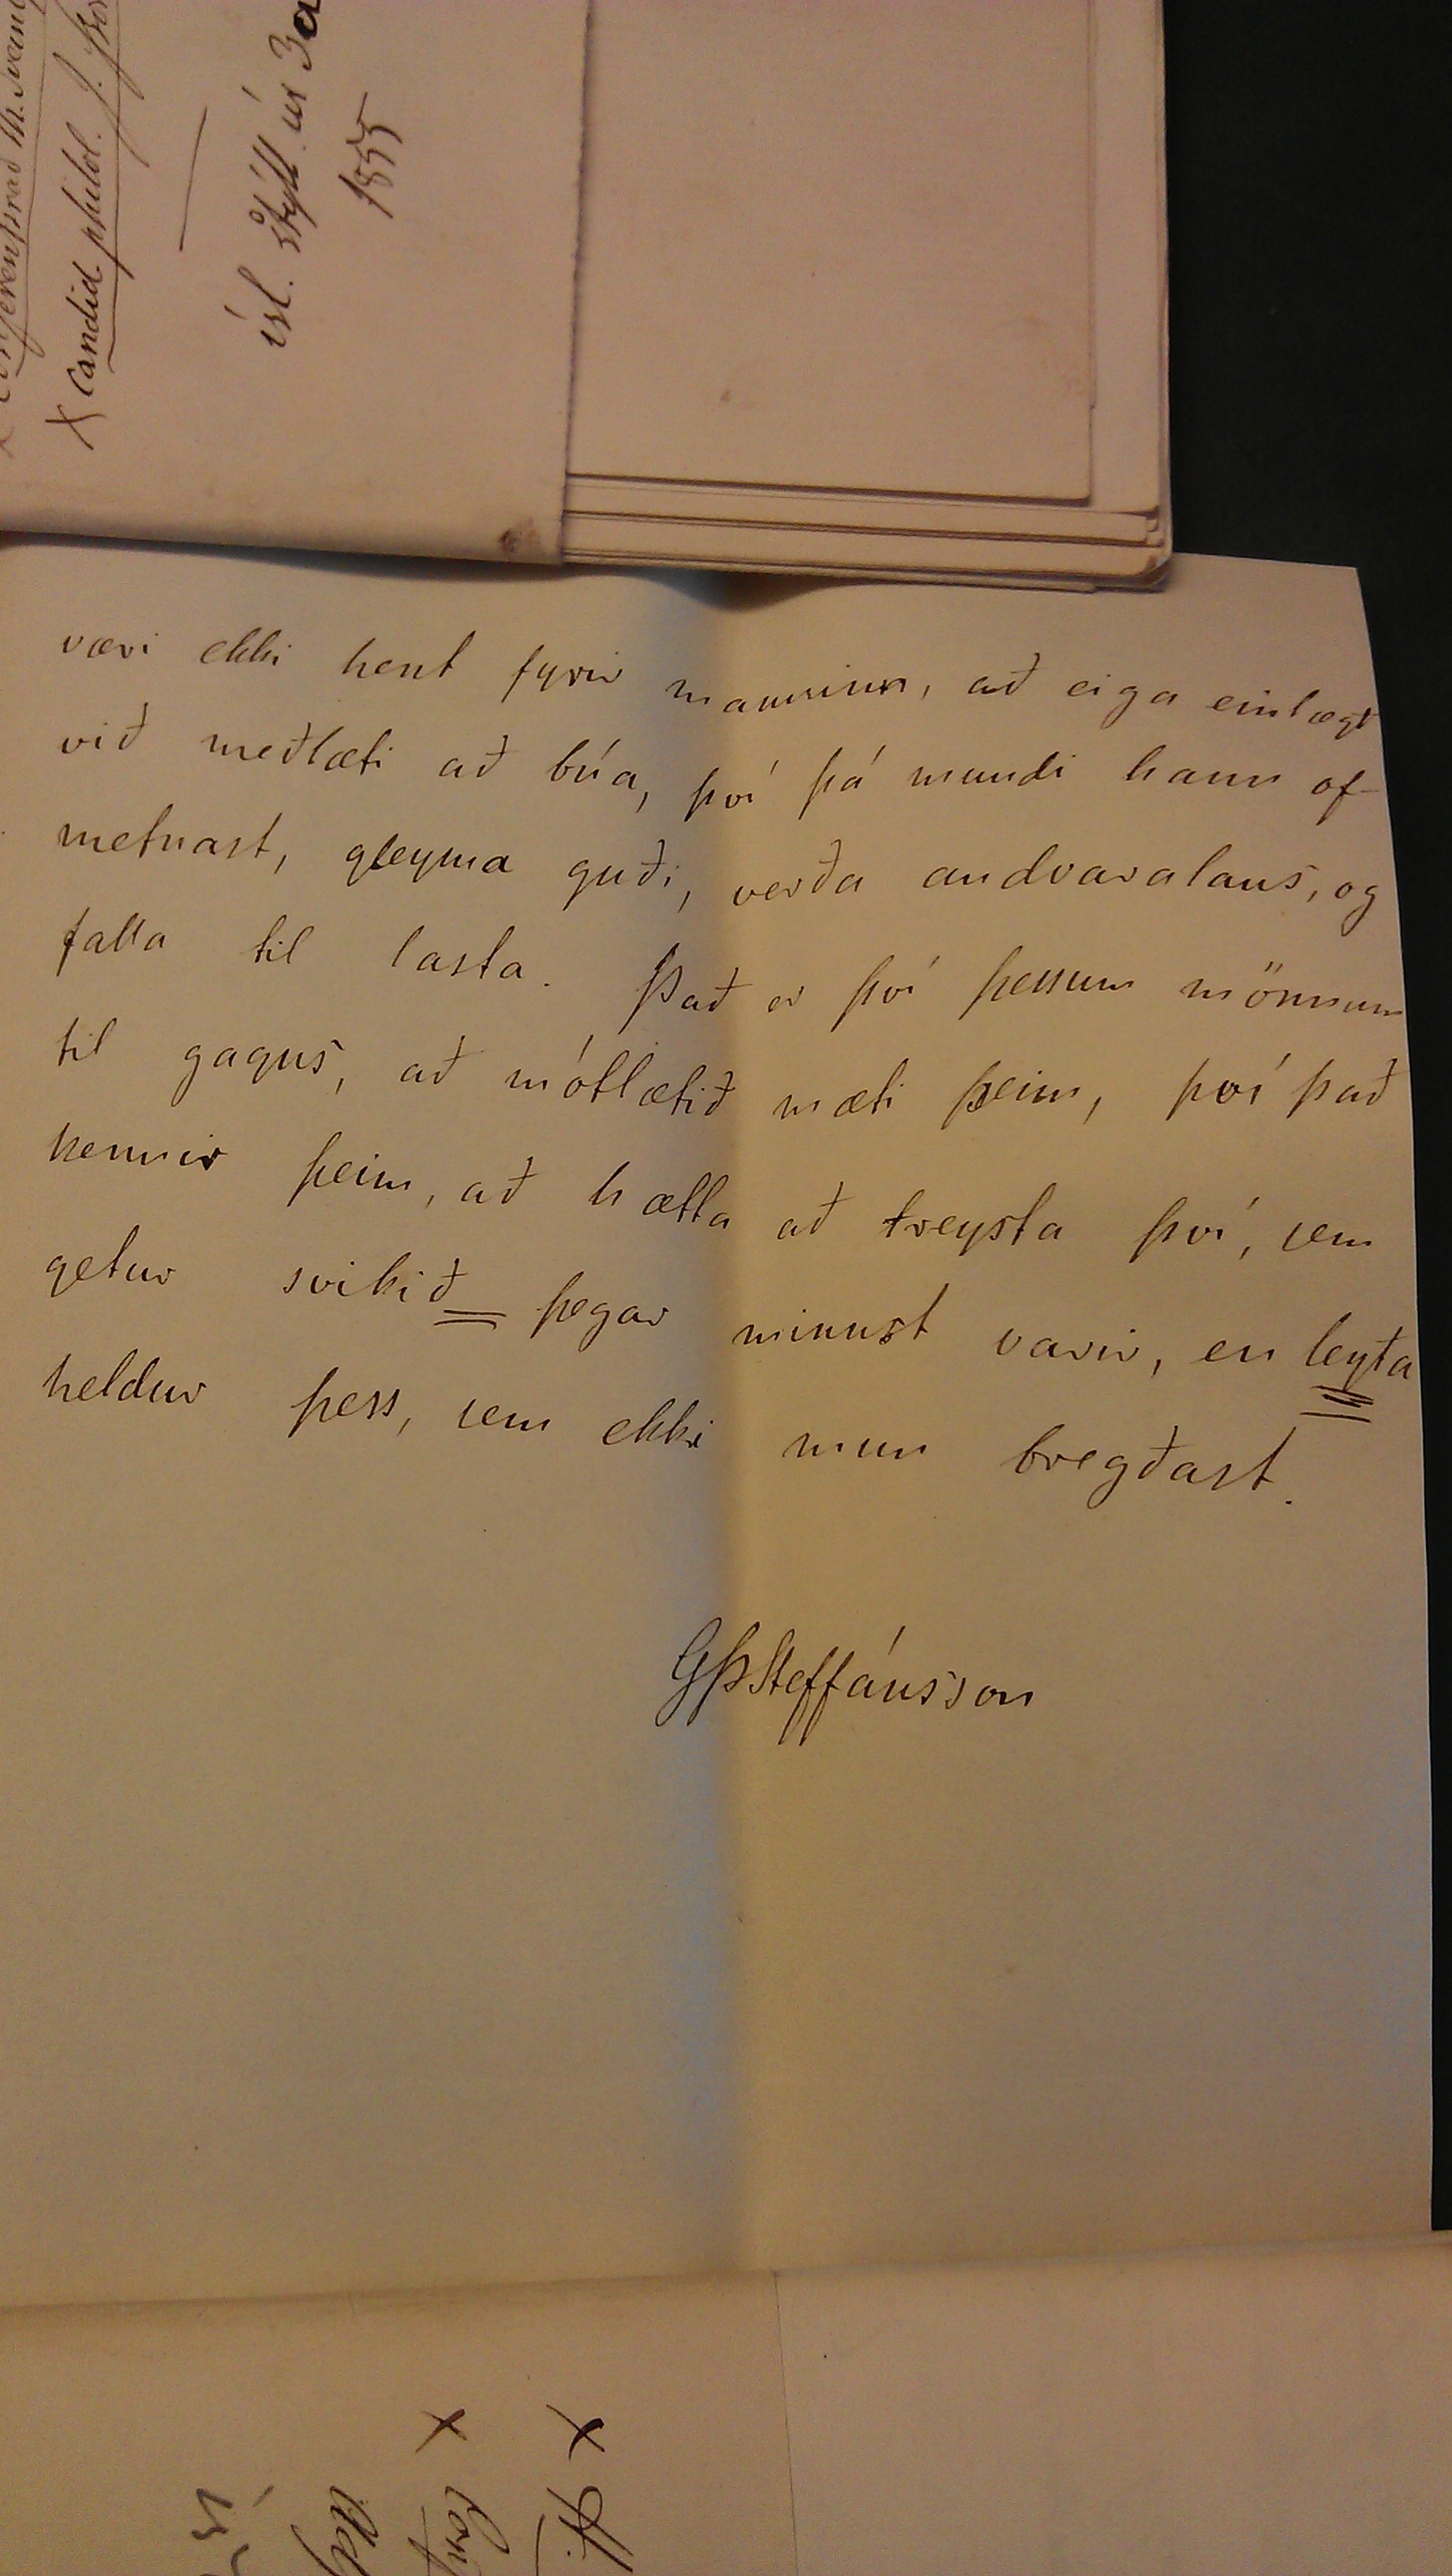 × Candid. philol. J. Þor
ísl. stýll. úr 3a
1855
væri ekki hent fyrir manninn, að eiga einlægt
við meðlæti að búa, því þá mundi hann of-
metnast, gleyma guði, verða andvaralaus, og
falla til lasta. Það er því þessum mönnum
til gagns, að mótlætið mæti þeim, því það
kennir þeim, að hætta að treysta því, sem
getur svikið þegar minnst varir, en leyta
heldur þess, sem ekki mun bregðast.
GÞSteffánsson